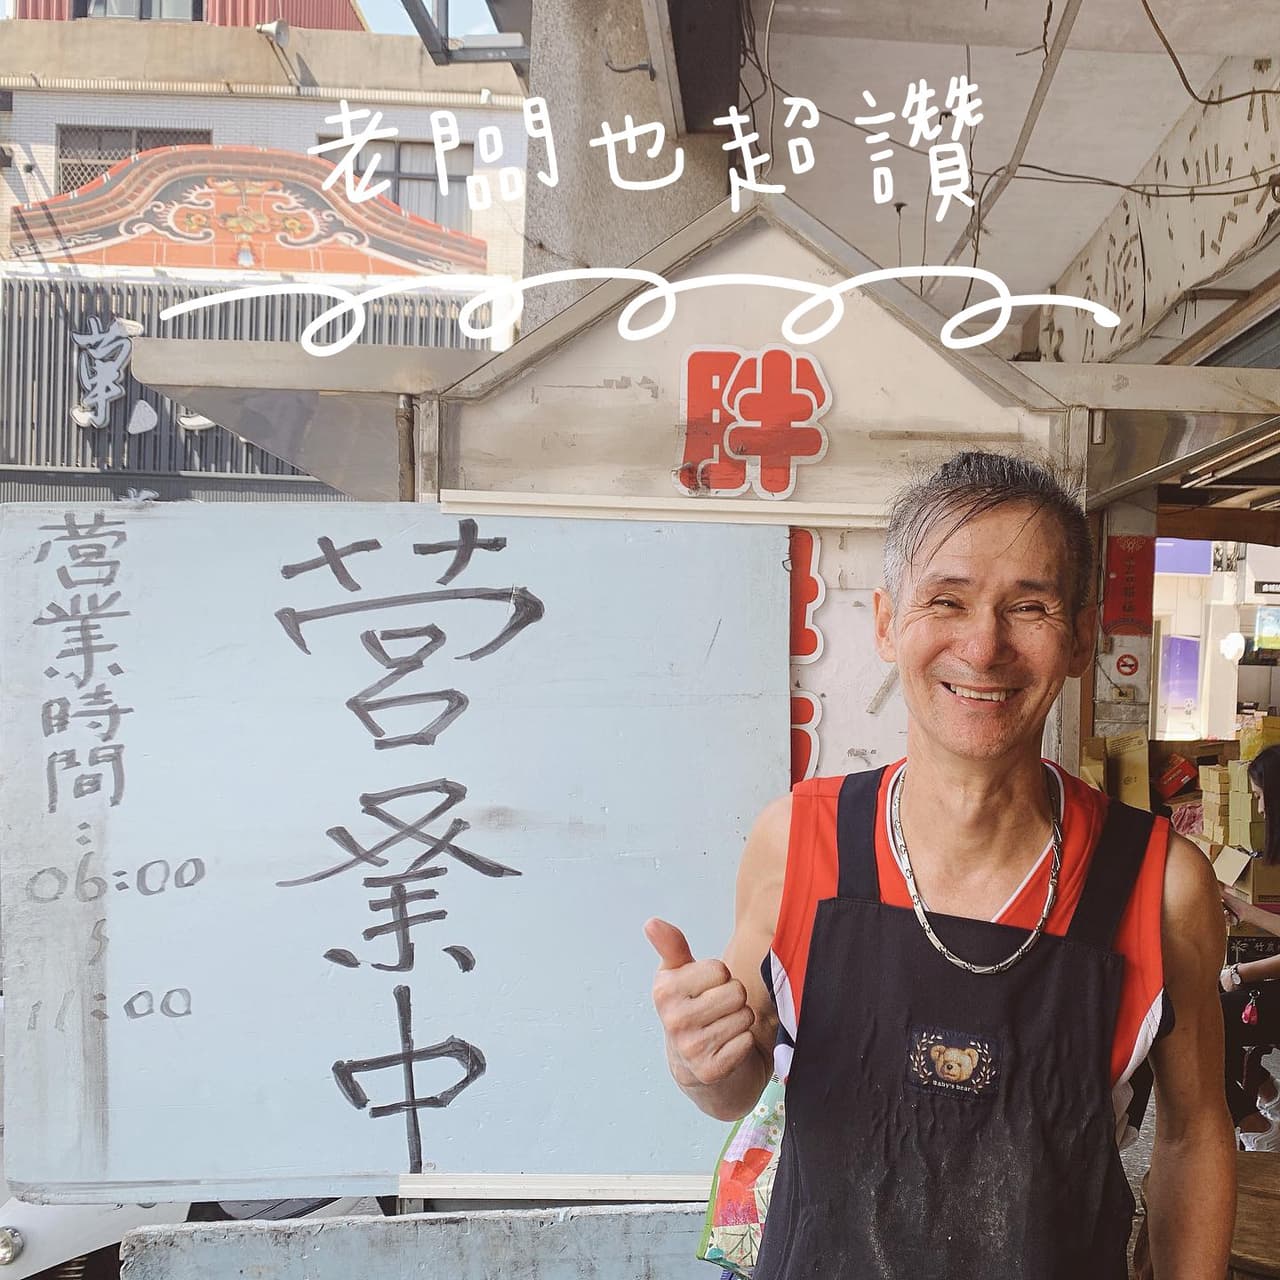 老闆也超讚
胖
營業時間:
06:00
~
11:00
營業中
Baby's bear